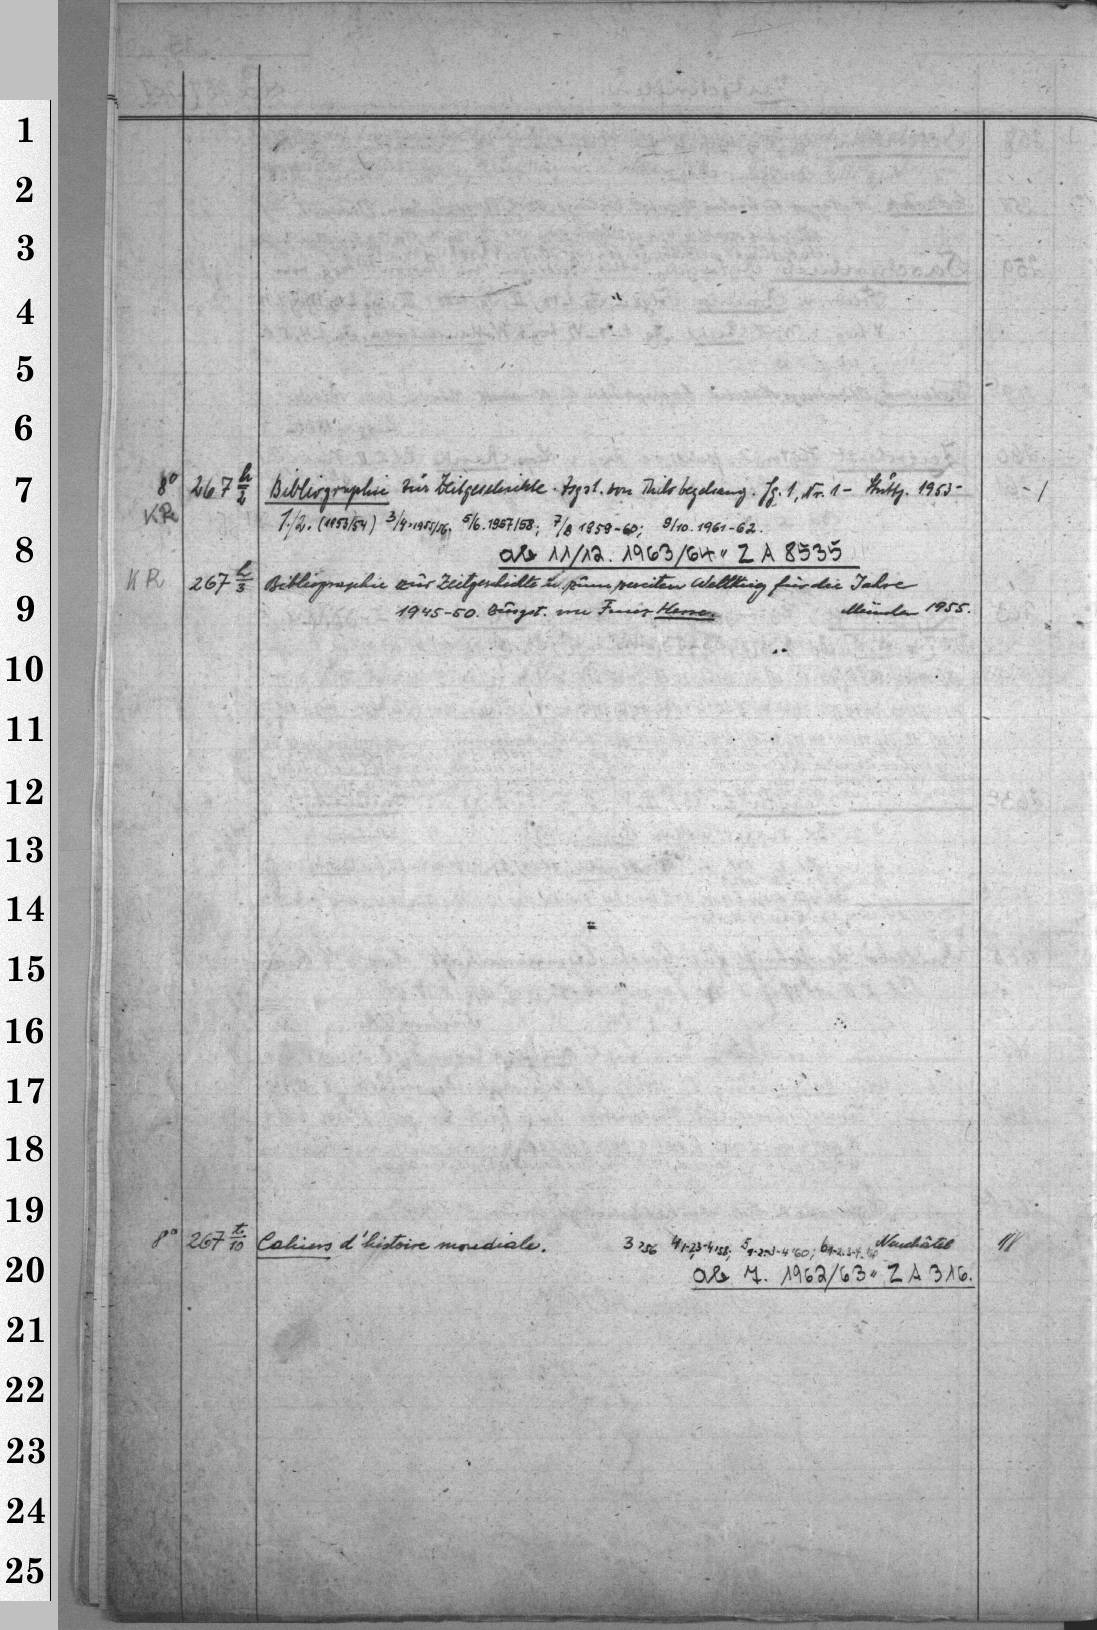 1
2
3
4
5
6
7
8
9
10
11
12
13
14
15
16
17
18
19
20
21
22
23
24
25
8° 267 h/2 Bibliographie zur Zeitgeschichte. Jg. 1, Nr. 1- Stuttg. 1953- -1
KR 1./2. (1953/54) 3/4. 1955/56, 5/6. 1957/58; 7/8 1959-60; 9/10. 1961-62.
ab 11/12. 1963/64 " ZA 8535
KR 267 h/3 Bibliographie zur Zeitgeschichte u. zum zweiten Weltkrieg für die Jahre
1945-50. von Franz Herre. München 1955.
8° 267 t/10 Cahiers d'histoire mondiale. Neuchâtel
ab 7. 1962/63 " ZA 316.